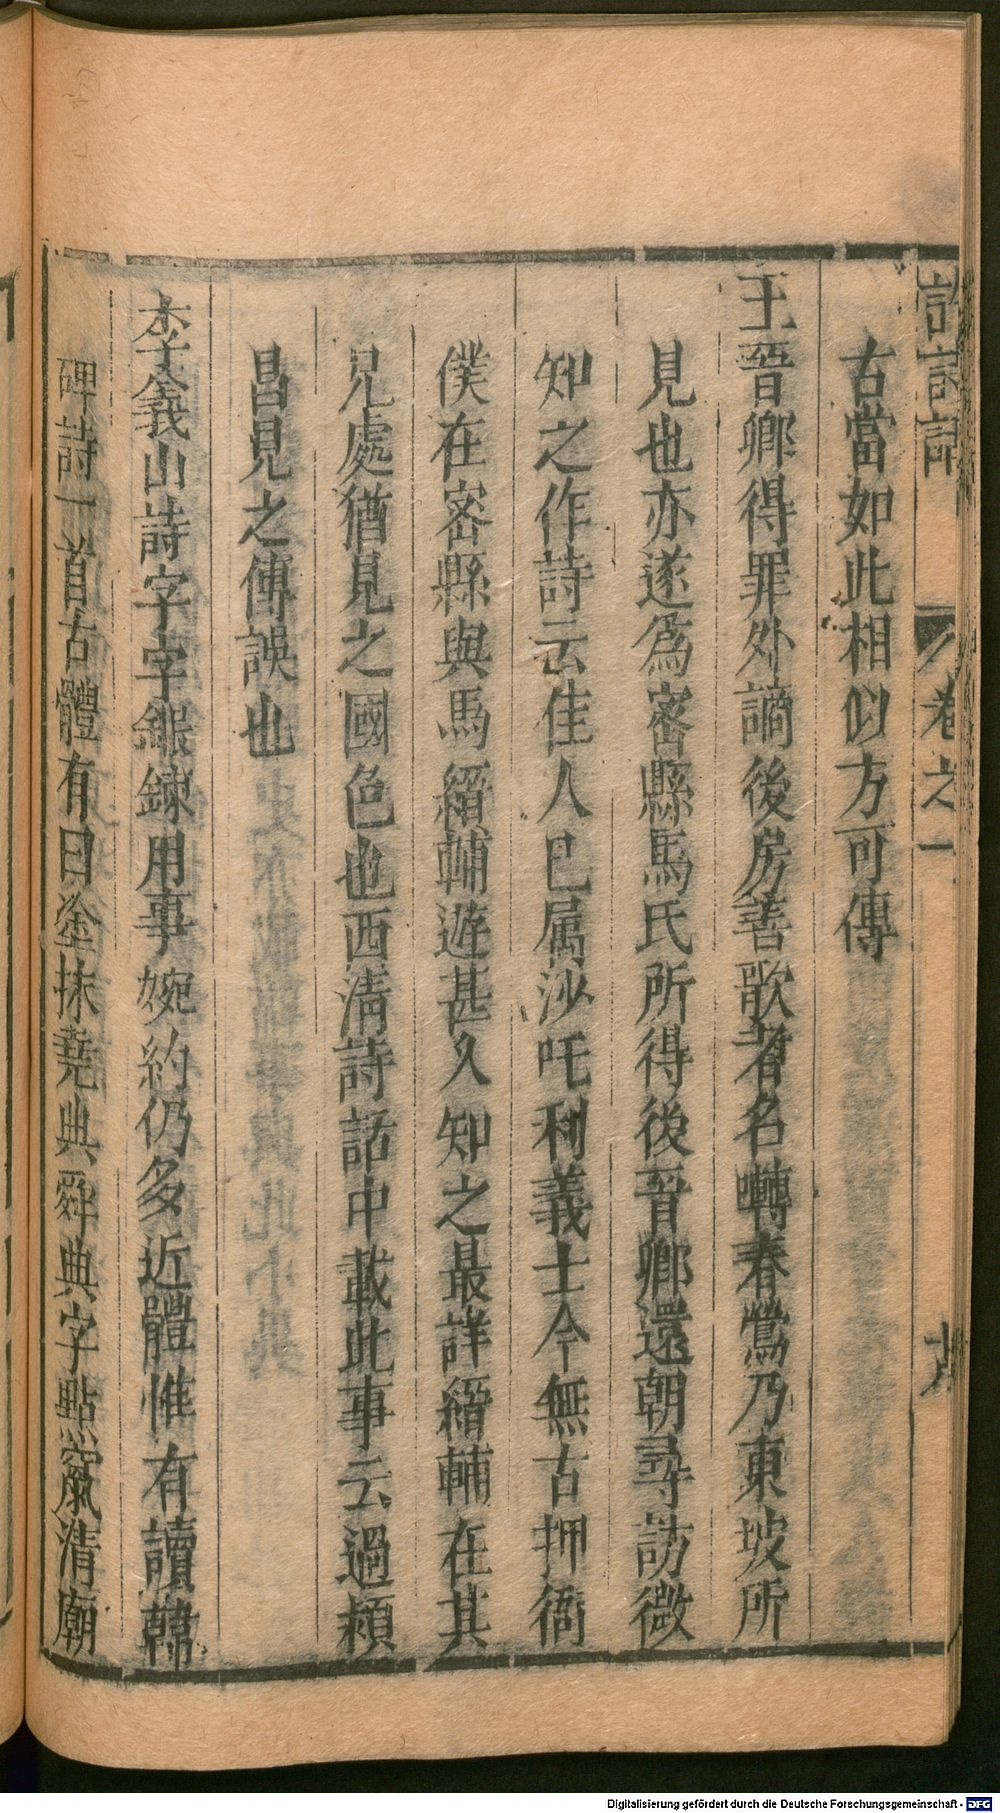 古當如此相似方可傳
王晉卿得罪外謫後房善歌者名囀春鶯乃東坡所
見也亦遂爲密縣馬氏所得後晉卿還朝尋訪微
知之作詩云佳人已属沙吒利義士今無古押衙
僕在密縣與馬縉輔遊甚久知之最詳縉輔在其
兄處猶見之國色也西清詩話中載此事云過潁
昌見之傳誤也
李義山詩字字鍛鍊用事婉約仍多近體惟有讀韓
碑詩一首古體有曰塗抹堯典舜典字點竄清廟
卷之一
Digitalisierung gefördert durch die Deutsche Forschungsgemeinschaft - DFG